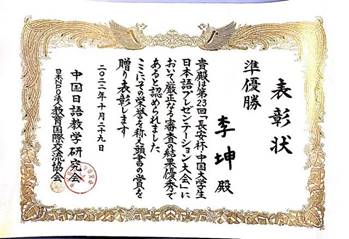 表彰状
準優勝
李坤 殿
貴殿は第23回「天安杯」中国大学生
日本語プレゼンテーション大会」に
おいて厳正なる審査の結果優秀で
あると認められました
ここにその栄誉を称え頭書の賞を
贈り表彰します
二〇二二年十月二十九日
中国日語教学研究会
教育国際交流協会